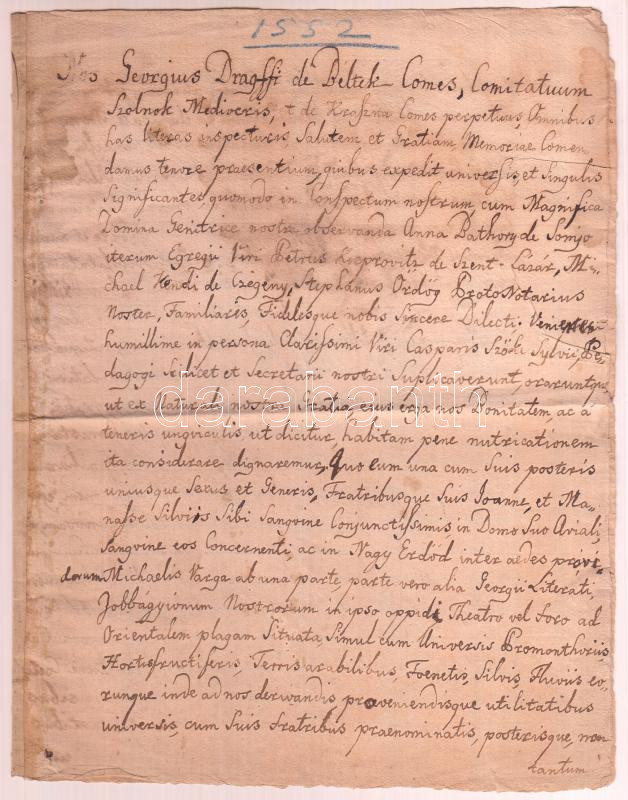 1552
Nos Georgius Dragffi de Beltek Comes, Comitatuum
Szolnok Mediocris, t de Kraszna Comes perpetuus, Omnibus
has literas inspecturis Salutem et Gratiam, Memoriae Comen
damus tenore praesentium, quibus expedit universis, et Singulis
Significantes, quomodo in Conspectum nostrum, cum Magnifica
Domina Genitrice nostra observanda Anna Bathory de Somjo
iterum Egregii Viri Petrus de Szent-Lázár, Mi-
chael Kendi de Czegény, Stephanus Ördög ProtoNotarius
Noster, Familiares, Fidelesque nobis Sincere Dilecti,
humillime in persona Clarissimi Viri Casparis Szödi Sylvii, Pe-
dagogi Scilicet et Secretarii nostri Suplicaverunt, oraruntque
ut ex Naturali nostra Gratia, ejus erga nos Bonitatem ac a
teneris unguiculis, ut dicitur, habitam pene nutricationem
ita considerare dignaremur, Quo eum una cum Suis posteris
uniusque Sexus et Generis, Fratribusque Suis Joanne, et Ma-
nasse Silviis Sibi Sangvine Conjunctissimis in Domo Suo Aviali,
Sangvine eos Concernenti, ac in Nagy Erdőd inter aedes provi-
dorum Michaelis Varga ab una parte, parte vero alia Georgii Literati,
Jobbágyionum Nostrorum in ipso oppidi Theatro vel foro ad
Orientalem plagam Situata, Simul cum Universis Promonthoriis,
Hortisfructiferis, Terris arabilibus, Foenetis, Silvis, Fluviis eo-
runque inde ad nos derivandis, proveniendisque utilitatibus
universis, cum Suis fratribus praenominatis, posterisque, non
tantum
darabanth